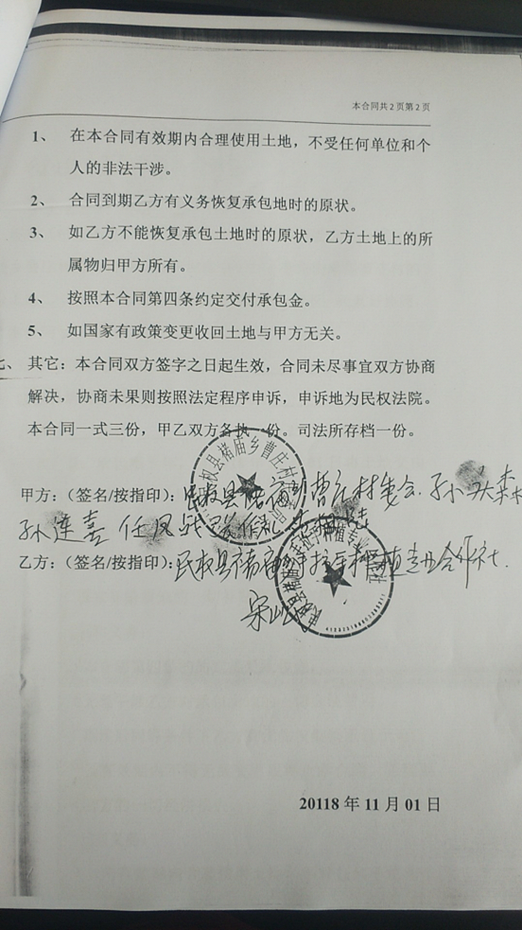 本合同共2页第2页
1、 在本合同有效期内合理使用土地，不受任何单位和个
人的非法干涉。
2、 合同到期乙方有义务恢复承包地时的原状。
3、 如乙方不能恢复承包土地时的原状，乙方土地上的所
属物归甲方所有。
4、 按照本合同第四条约定交付承包金。
5、 如国家有政策变更收回土地与甲方无关。
七、 其它：本合同双方签字之日起生效，合同未尽事宜双方协商
解决，协商未果则按照法定程序申诉，申诉地为民权法院。
本合同一式三份，甲乙双方各执一份。司法所存档一份。
民权县褚庙乡曹庄村
甲方：（签名/按指印）：民权县褚庙乡曹庄村委会
孙连喜 任凤
乙方：（签名/按指印）：民权县褚庙 种植专业合作社
宋
20118 年 11 月 01 日